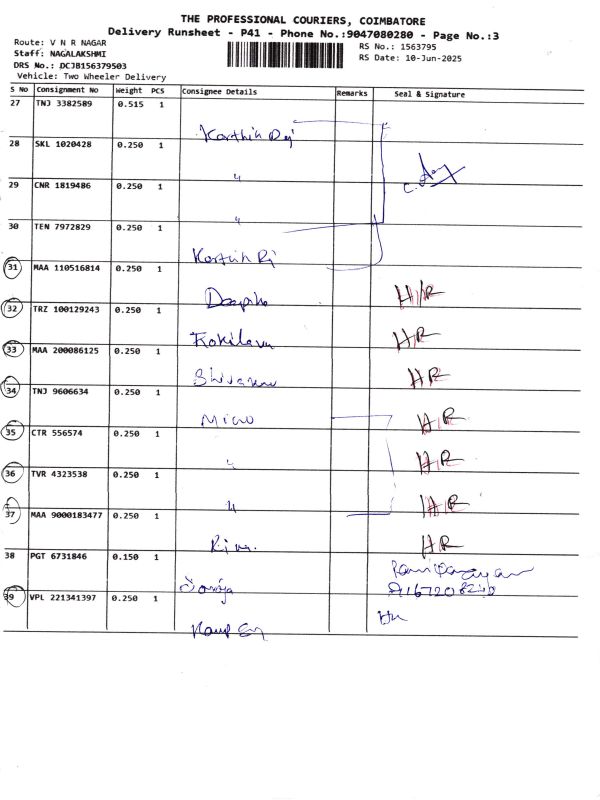 THE PROFESSIONAL COURIERS, COIMBATORE
Delivery Runsheet - P41 - Phone No.:9047080280 - Page No.:3
Route: V N R NAGAR
Staff: NAGALAKSHMI
DRS No.: DCJB156379503
Vehicle: Two Wheeler Delivery
RS No.: 1563795
RS Date: 10-Jun-2025
S No Consignment No Weight PCS Consignee Details Remarks Seal & Signature
27 TNJ 3382589 0.515 1
Karthik
28 SKL 1020428 0.250 1
"
29 CNR 1819486 0.250 1
"
30 TEN 7972829 0.250 1
Karthik
31 MAA 110516814 0.250 1
H/R
32 TRZ 100129243 0.250 1
HR
33 MAA 200086125 0.250 1
HR
34 TNJ 9606634 0.250 1
HR
35 CTR 556574 0.250 1
"
HR
36 TVR 4323538 0.250 1
"
HR
37 MAA 9000183477 0.250 1
HR
38 PGT 6731846 0.150 1
39 VPL 221341397 0.250 1